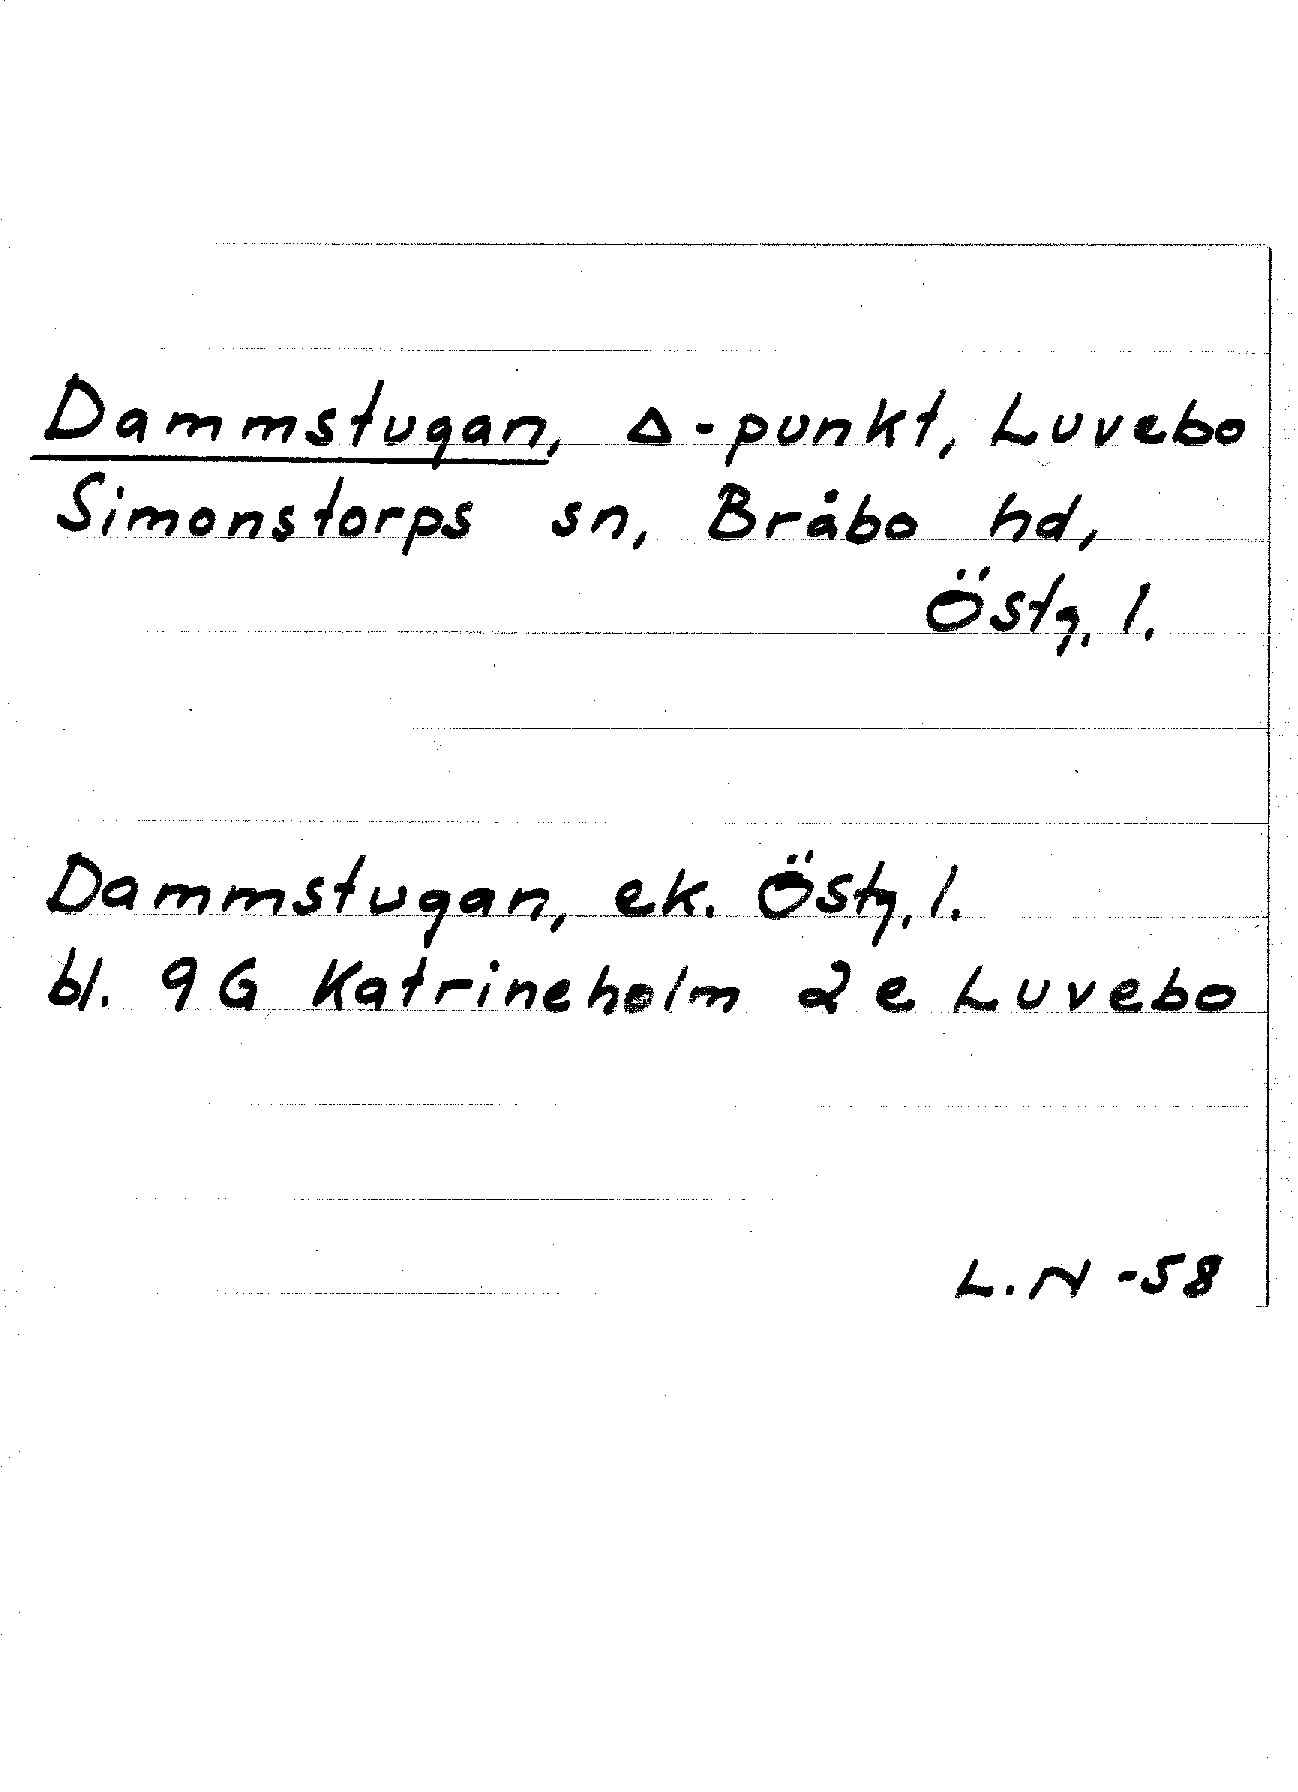 Dammstugan, Δ-punkt, Luvebo
Simonstorps sn, Bråbo hd,
Östg. l.
Dammstugan, ek. Östg. l.
bl. 9G Katrineholm 2e Luvebo
L.N -58